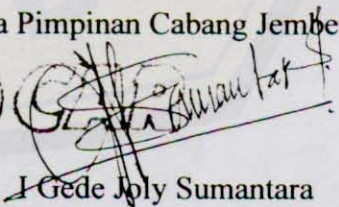 a Pimpinan Cabang Jembe
I Gede Joly Sumantara